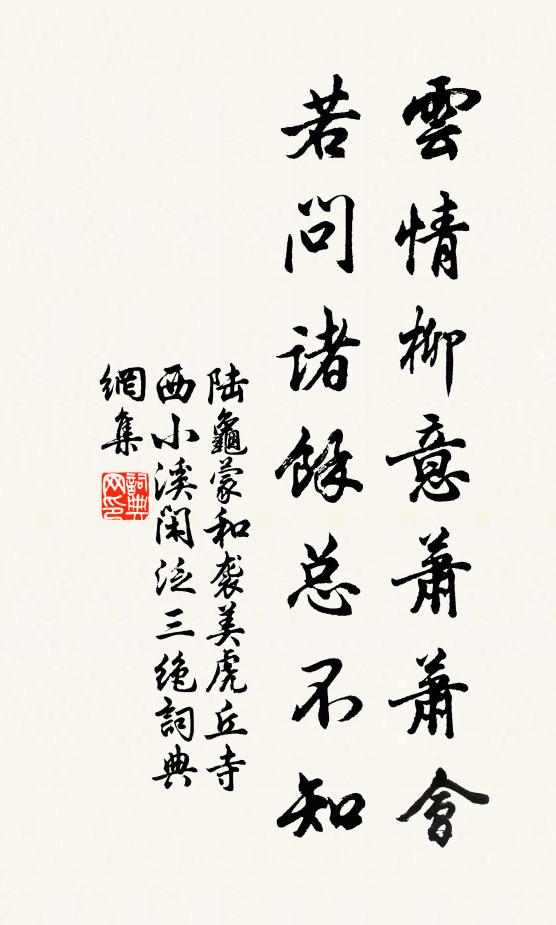 雲情柳意蕭蕭會
若問諸餘总不知
陆龜蒙和袭美虎丘寺
西小溪闲泛三绝詞典
網集
詞典
网印